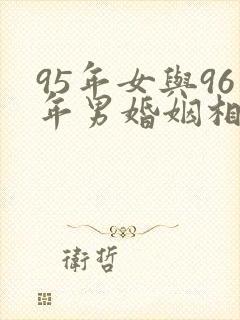 95年女與96
年男婚姻相
衛哲